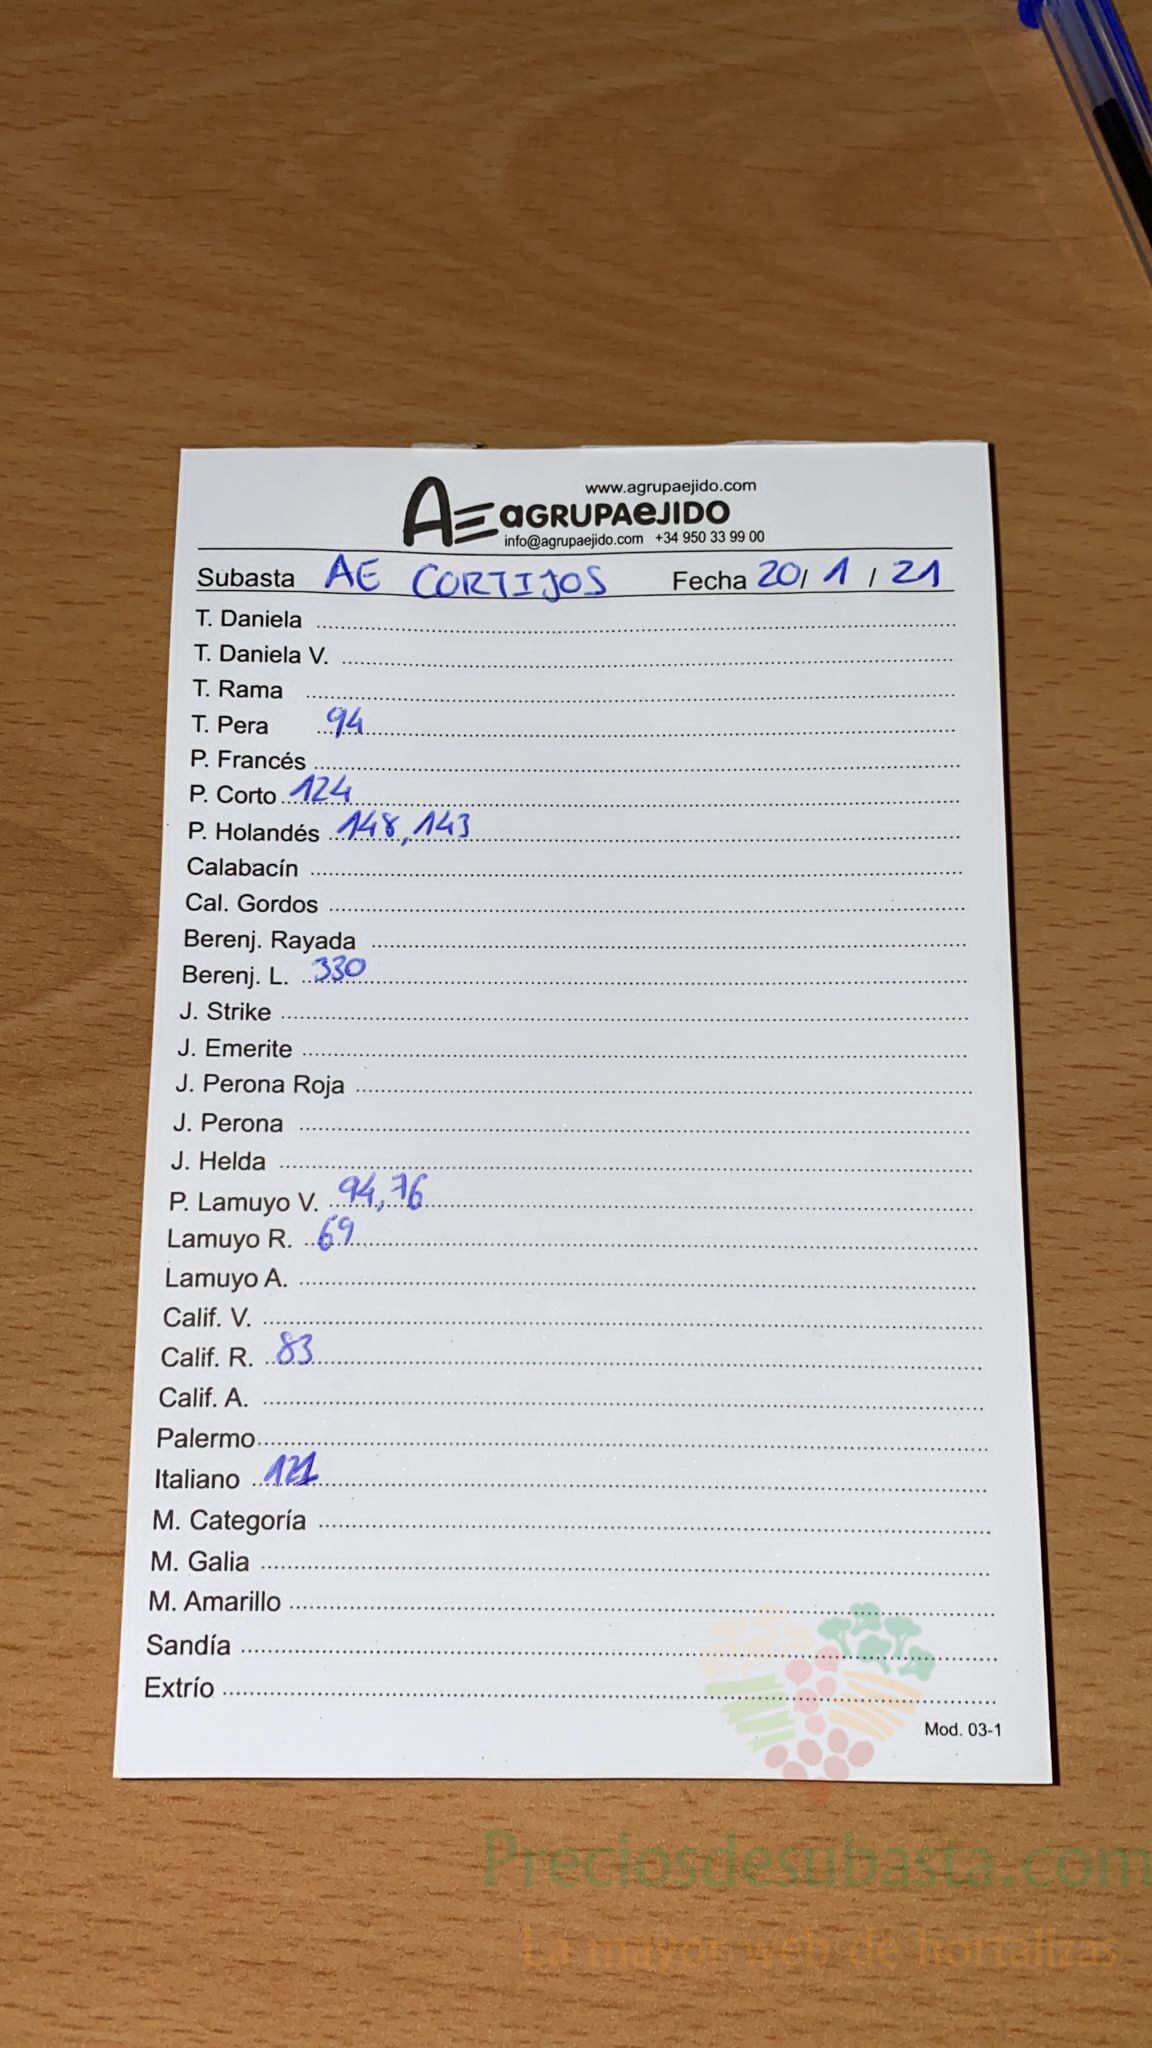 www.agrupaejido.com
AE aGRUPAeJIDO
info@agrupaejido.com +34 950 33 99 00
Subasta AE CORTIJOS Fecha 20/ 1 / 21
T. Daniela
T. Daniela V.
T. Rama
T. Pera 94
P. Francés
P. Corto 124
P. Holandés 148, 143
Calabacín
Cal. Gordos
Berenj. Rayada
Berenj. L. 330
J. Strike
J. Emerite
J. Perona Roja
J. Perona
J. Helda
P. Lamuyo V. 94, 76
Lamuyo R. 69
Lamuyo A.
Calif. V.
Calif. R. 83
Calif. A.
Palermo
Italiano 121
M. Categoría
M. Galia
M. Amarillo
Sandía
Extrío
Mod. 03-1
Preciosdesubasta.com
La mayor web de hortalizas